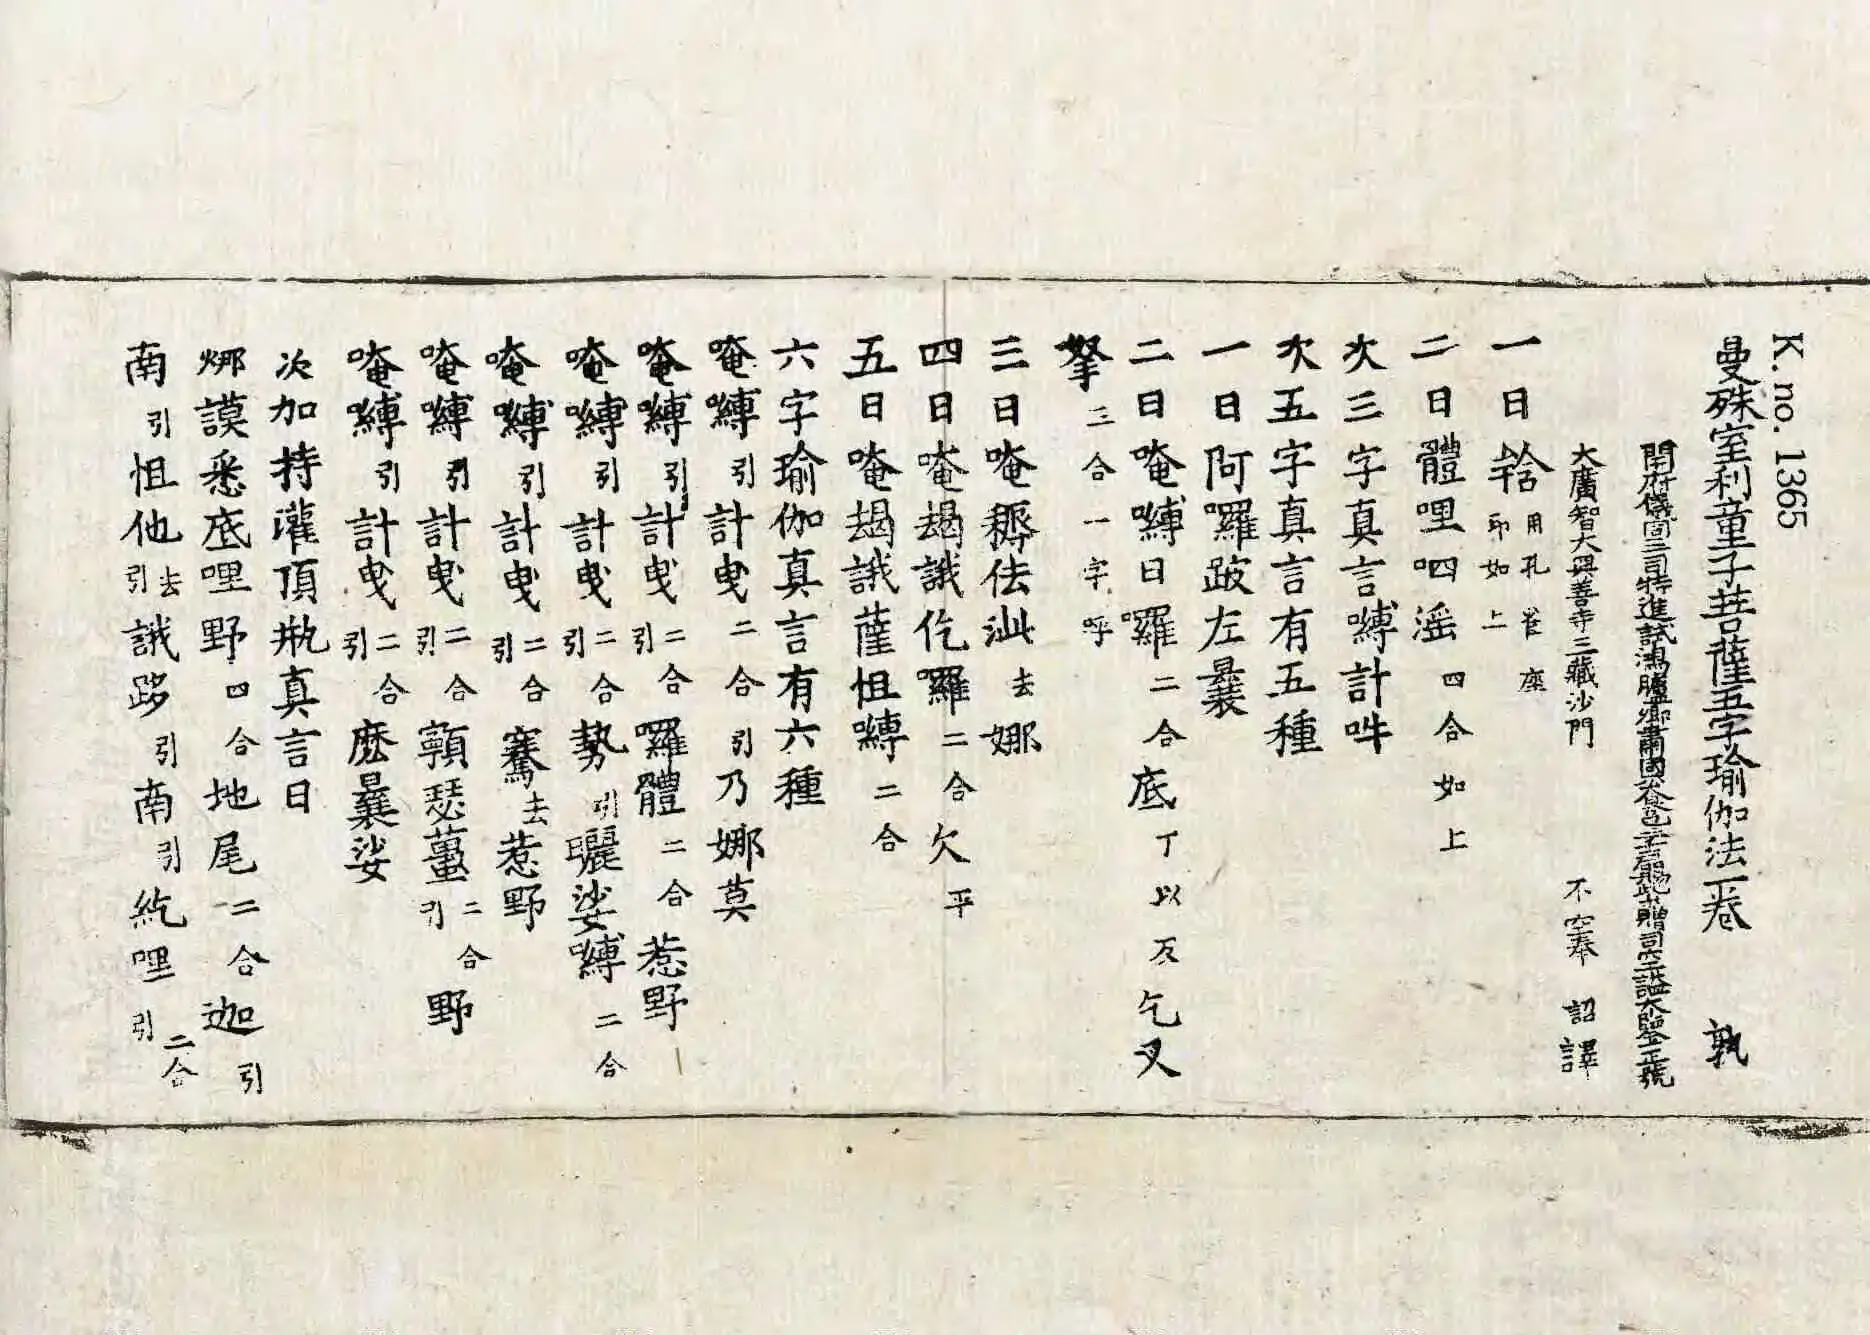 K.no.1365
曼殊室利童子菩薩五字瑜伽法一卷 孰
開府儀同三司特進試鴻臚卿肅國公食邑三千戶賜紫贈司空謚大鑒正號
大廣智大興善寺三藏沙門 不空奉 詔譯
一曰 用孔雀座印如上
二曰體哩呬淫四合如上
次三字真言嚩計吽
次五字真言有五種
一曰阿囉跛左曩
二曰唵嚩日囉二合底丁以反乞叉
拏三合一字呼
三曰唵 佉訕去娜
四曰唵朅誐仡囉二合欠平
五曰唵朅誐薩怛嚩二合
六字瑜伽真言有六種
唵嚩引計曳二合引乃娜莫
唵嚩引計曳二合引囉體二合惹野
唵嚩引計曳二合引勢引曬娑嚩二合
唵嚩引計曳二合引騫去惹野
唵嚩引計曳二合引顎瑟薑二合引野
唵嚩引計曳二合引麽曩娑
次加持灌頂瓶真言曰
娜謨悉底哩野四合地尾二合迦引
南引怛他去引誐跢引南引紇哩二合引